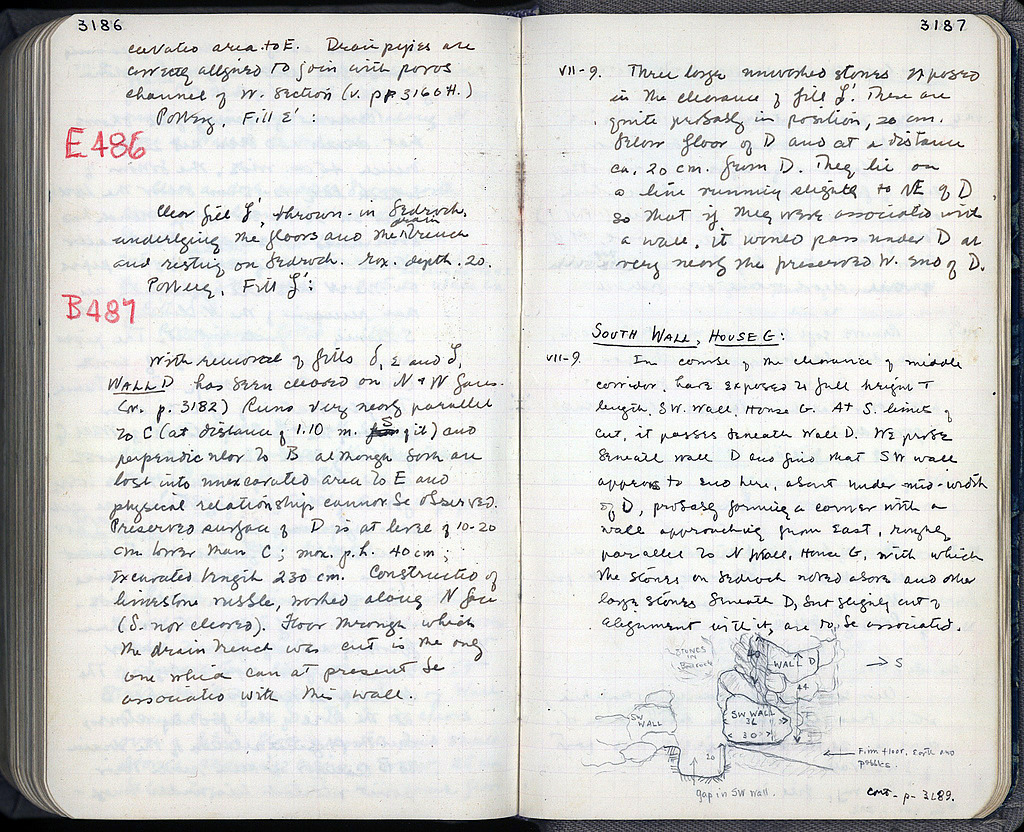 3186
cavated area to E. Drain pipes are
correctly alligned to join with poros
channel of W. Section (v. pp 3160 ff.)
Pottery, Fill ε':
E486
Clear fill ζ', thrown in bedrock,
underlying the floors and the drain trench
and resting on bedrock. Max. depth .20.
Pottery, Fill ζ':
B487
With removal of fills δ, ε and ζ,
WALL D has been cleared on N & W faces
(v. p. 3182) Runs very nearly parallel
to C (at distance of 1.10 m. S of it) and
perpendicular to B although both are
lost into unexcavated area to E and
physical relationship cannot be observed.
Preserved surface of D is at level of 10-20
cm lower than C; max. p.h. 40 cm;
Excavated length 230 cm. Construction of
limestone rubble, worked along N face
(S. not cleared). Floor through which
the drain trench was cut is the only
one which can at present be
associated with this wall.
3187
VII-9. Three large unworked stones exposed
in the clearance of fill ζ'. These are
quite probably in position, 20 cm.
below floor of D and at a distance
ca. 20 cm. from D. They lie on
a line running slightly to NE of D
so that if they were associated with
a wall, it would pass under D at
very nearly the preserved W. end of D.
SOUTH WALL, HOUSE G:
VII-9. In course of the clearance of middle
corridor, have exposed to full height +
length, SW. Wall, House G. At S. limit of
cut, it passes beneath Wall D. We probe
beneath wall D and find that SW wall
appears to end here, about under mid-width
of D, probably forming a corner with a
wall approaching from East, roughly
parallel to N Wall, House G, with which
the stones on bedrock noted above and other
large stones beneath D, but slightly out of
alignment with it, are to be associated.
STONES in Bedrock
40
WALL D
→ S
44
SW WALL
SW WALL
36
30
20
Firm floor, earth and
pebbles.
gap in SW wall.
cont. p. 3189.